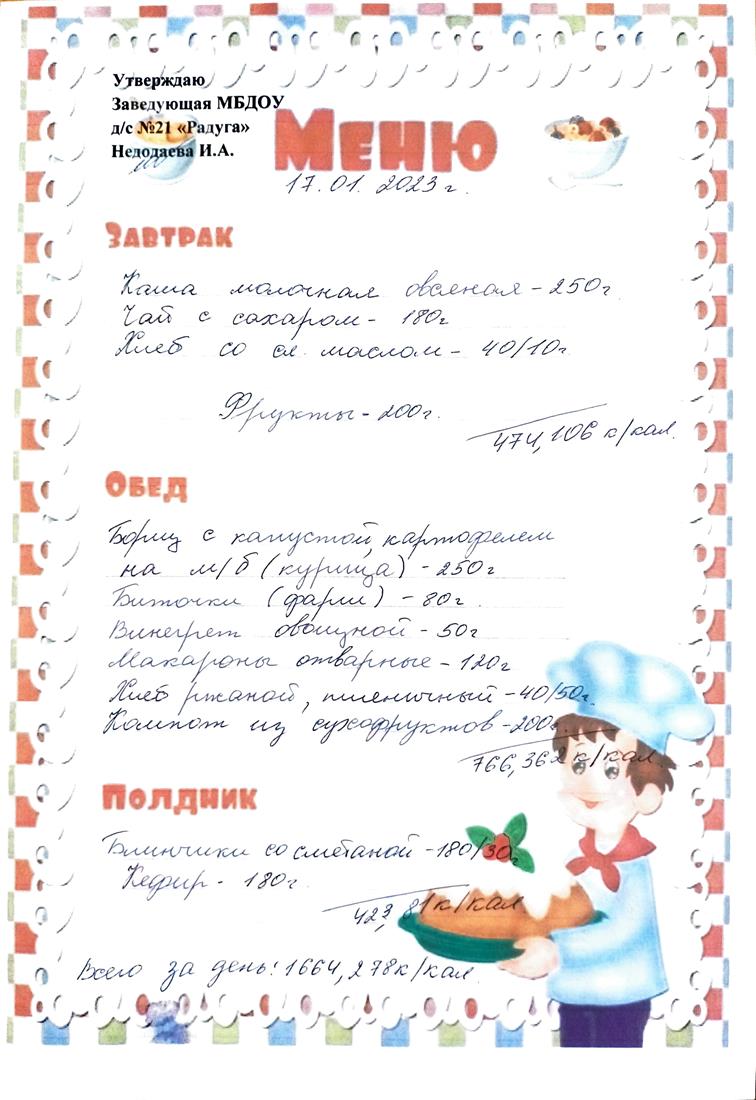 Утверждаю
Заведующая МБДОУ
д/с №21 «Радуга»
Недодаева И.А.
Меню
17.01.2023г.
Завтрак
Каша молочная овсяная - 250г
Чай с сахаром - 180г
Хлеб со сл. маслом - 40/10г
Фрукты - 200г.
474,106 к/кал.
Обед
Борщ с капустой, картофелем
на м/б (курица) - 250г
Биточки (фарш) - 80г.
Винегрет овощной - 50г
Макароны отварные - 120г
Хлеб ржаной, пшеничный - 40/50г.
Компот из сухофруктов - 200г.
766,362 к/кал.
Полдник
Блинчики со сметаной - 180/30г
Кефир - 180г.
423,81 к/кал.
Всего за день: 1664,278 к/кал.